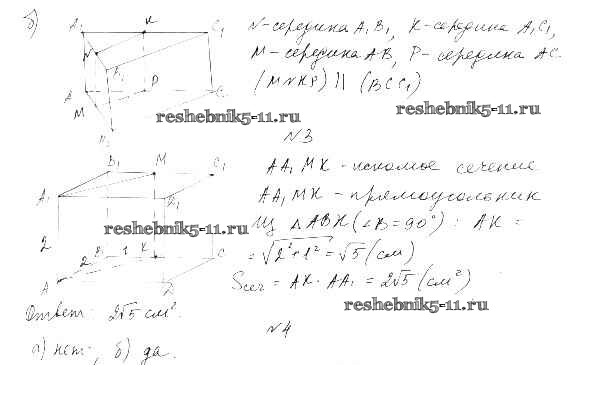 б)
A₁ K C₁
N B₁
A P C
M
B
N - середина A₁B₁, K - середина A₁C₁,
M - середина AB, P - середина AC.
(MNKP) || (BCC₁)
reshebnik5-11.ru
reshebnik5-11.ru
N3
B₁ M C₁
A₁ D₁
2 B 1 K C
2
A D
AA₁MK - искомое сечение
AA₁MK - прямоугольник
Из △ABK (∠B = 90°) : AK =
= √2²+1² = √5 (см)
Sсеч = AK · AA₁ = 2√5 (см²)
reshebnik5-11.ru
reshebnik5-11.ru
Ответ: 2√5 см².
N4
а) нет, б) да.